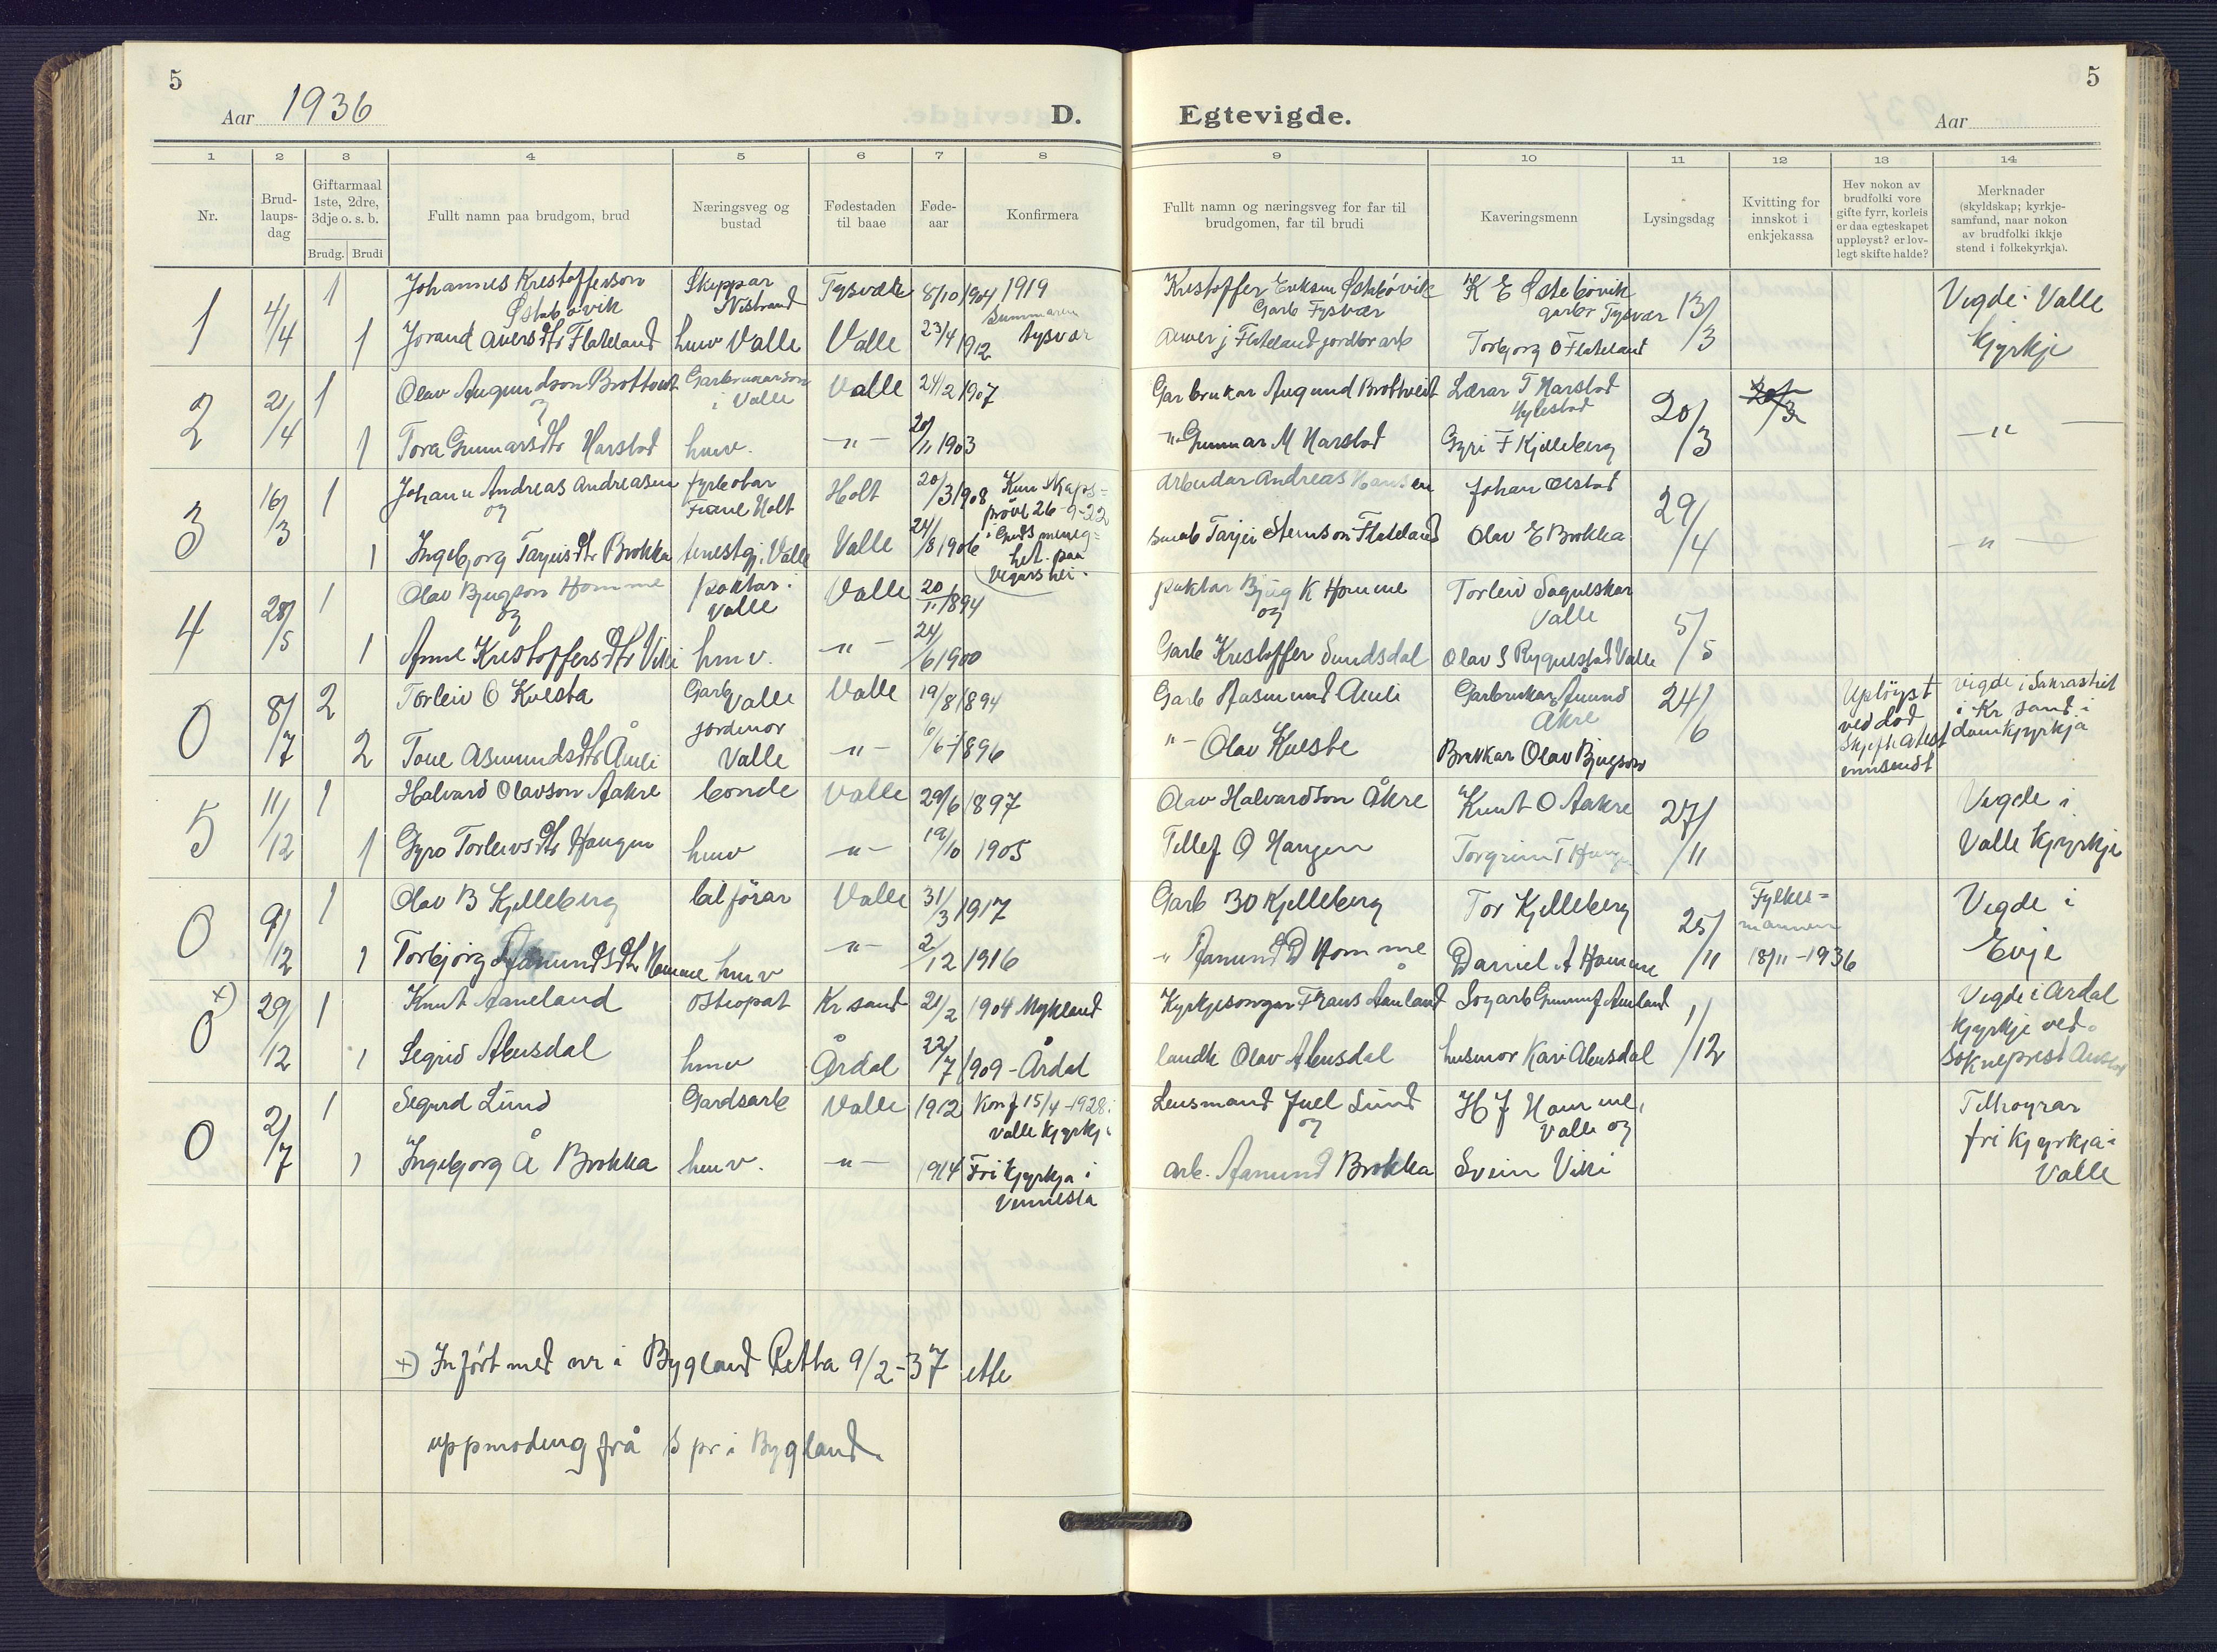 5
Aar 1936
D.
Egtevigde.
Aar
5
1 2 3 4 5 6 7 8
9 10 11 12 13 14
Nr.
Brud-
laups-
dag
Giftarmaal
1ste, 2dre,
3dje o. s. b.
Brudg. Brudi
Fullt namn paa brudgom, brud
Næringsveg og
bustad
Fødestaden
til baae
Føde-
aar
Konfirmera
Fullt namn og næringsveg for far til
brudgomen, far til brudi
Kaveringsmenn
Lysingsdag
Kvitting for
innskot i
enkjekassa
Hev nokon av
brudfolki vore
gifte fyrr, korleis
er daa egteskapet
uppløyst? er lov-
legt skifte halde?
Merknader
(skyldskap; kyrkje-
samfund, naar nokon
av brudfolki ikkje
stend i folkekyrkja).
1 4/4 1 Johannes Krestofferson Skeppar Tysvær 8/10 1904 1919
Østebøvik
1 Jorand Aversdtr Flateland husv Valle Valle 23/4 1912 Tysvær
Krestoffer Eriksen Østebøvik K E Østebøvik 13/3 Vigde i Valle
Garb Tysvær garbr Tysvær
Auver J Flateland jordbr arb Torbjorg O Flateland Kjyrkje
2 21/4 1 Olav Augundson Brottveit Garbrukarson Valle 24/2 1907
og i Valle
1 Tora Gunnarsdtr Harstad husv. -"- 20/11 1903
Garbrukar Augund Brottveit Lærar T Harstad 20/3 20/3
Hylestad
"- Gunnar M Harstad Gyri F Kjelleberg -"-
3 16/3 1 Johan Andreas Andreasen fyrbøtar Holt 20/3 1908 Kunskaps=
og Fiane Holt prøve 26-9-22
1 Ingebjorg Tarjeisdtr Brokka tenestgj. Valle Valle 24/8 1906 i Guds meneg=
het paa
Vegårshei.
Arbeidar Andreas Hansen Johan Ølstad 29/4
småb Tarjei Steinson Flateland Olav E Brokka -"-
4 28/5 1 Olav Bjugson Homme paktar i Valle 20/11 1894
og Valle
1 Anne Krestoffersdtr Viki husv. -"- 24/6 1900
paktar Bjug K Homme Torleiv Sagneskar 5/5
og Valle
Garb Krestoffer Sundsdal Olav S Rygnestad Valle
0 8/7 2 Torleiv O Kvesta Garb Valle Valle 19/8 1894
2 Tone Asmundsdtr Åmli jordmor Valle -"- 6/6 1896
Garb Asmund Åmli Garbrukar Åmund 24/6 Upløyst Vigde i Sakrastiet
Åkre ved død i Kr sand i
"- Olav Kveste Brukar Olav Bjugson Skifteatest domkjyrkja
innsendt
5 11/12 1 Halvard Olavson Aakre bonde Valle 29/6 1897
1 Gyro Torleivsdtr Haugen husv -"- 19/10 1905
Olav Halvardson Åkre Knut O Aakre 27/11 Vigde i
Tellef O Haugen Torgrim T Haugen Valle Kjyrkje
0 9/12 1 Olav B Kjelleberg bilførar Valle 31/3 1917
1 Torbjørg Åsmundsdtr Homme husv -"- 2/12 1916
Garb BO Kjelleberg Tor Kjelleberg 25/11 Fylkes= Vigde i
mannen
" Åsmund D Homme Daniel A Homme 18/11-1936 Evje
+) 0 29/12 1 Knut Aaneland Osteopat Kr sand 21/2 1904 Mykland
1 Sigrid Abusdal husv Årdal 22/7 1909 - Årdal
Kyrkjesongar Frans Aanland 1/12 Vigde i Årdal
Kjyrkje ved
landh Olav Abusdal husmor Kari Abusdal Sokneprest
0 2/7 1 Sigurd Lund Gardsarb Valle 1912 Konf 15/4-1928 i
Valle kjyrkje
1 Ingebjorg Å Brokka husv. -"- 1914 Fri kjyrkja i
Vennesla
Lensmand Juel Lund H J Homme, Tilhøyrar
og Valle og fri kjyrkja i
arb. Åsmund Brokka Svein Viki Valle
+) Inført med nr i Bygland Retta 9/2-37 ette
uppmoding frå S pr i Bygland.